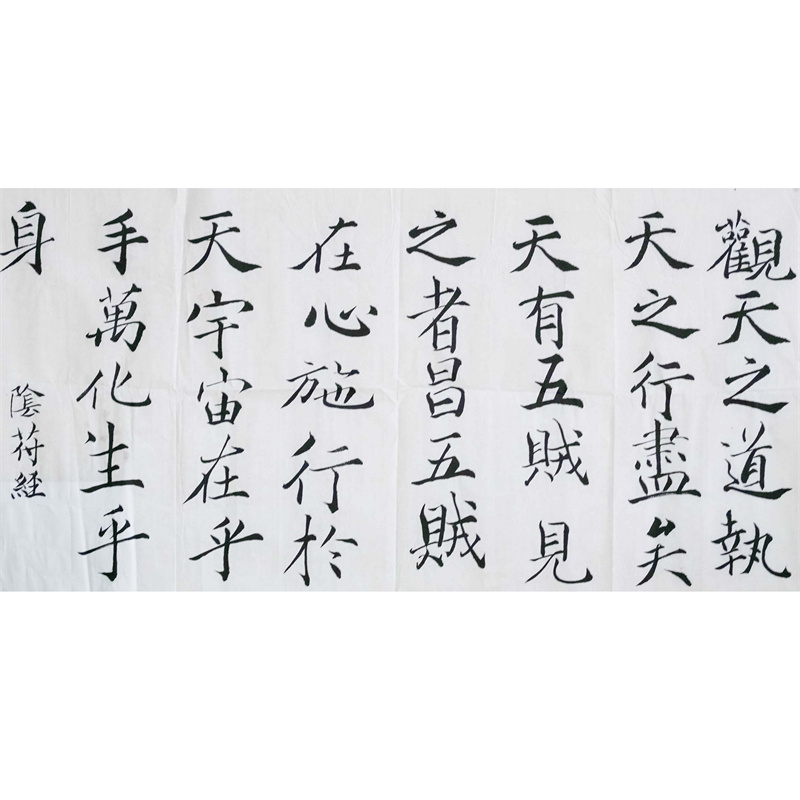 觀天之道執
天之行盡矣
天有五賊見
之者昌五賊
在心施行於
天宇宙在乎
手萬化生乎
身
陰苻經